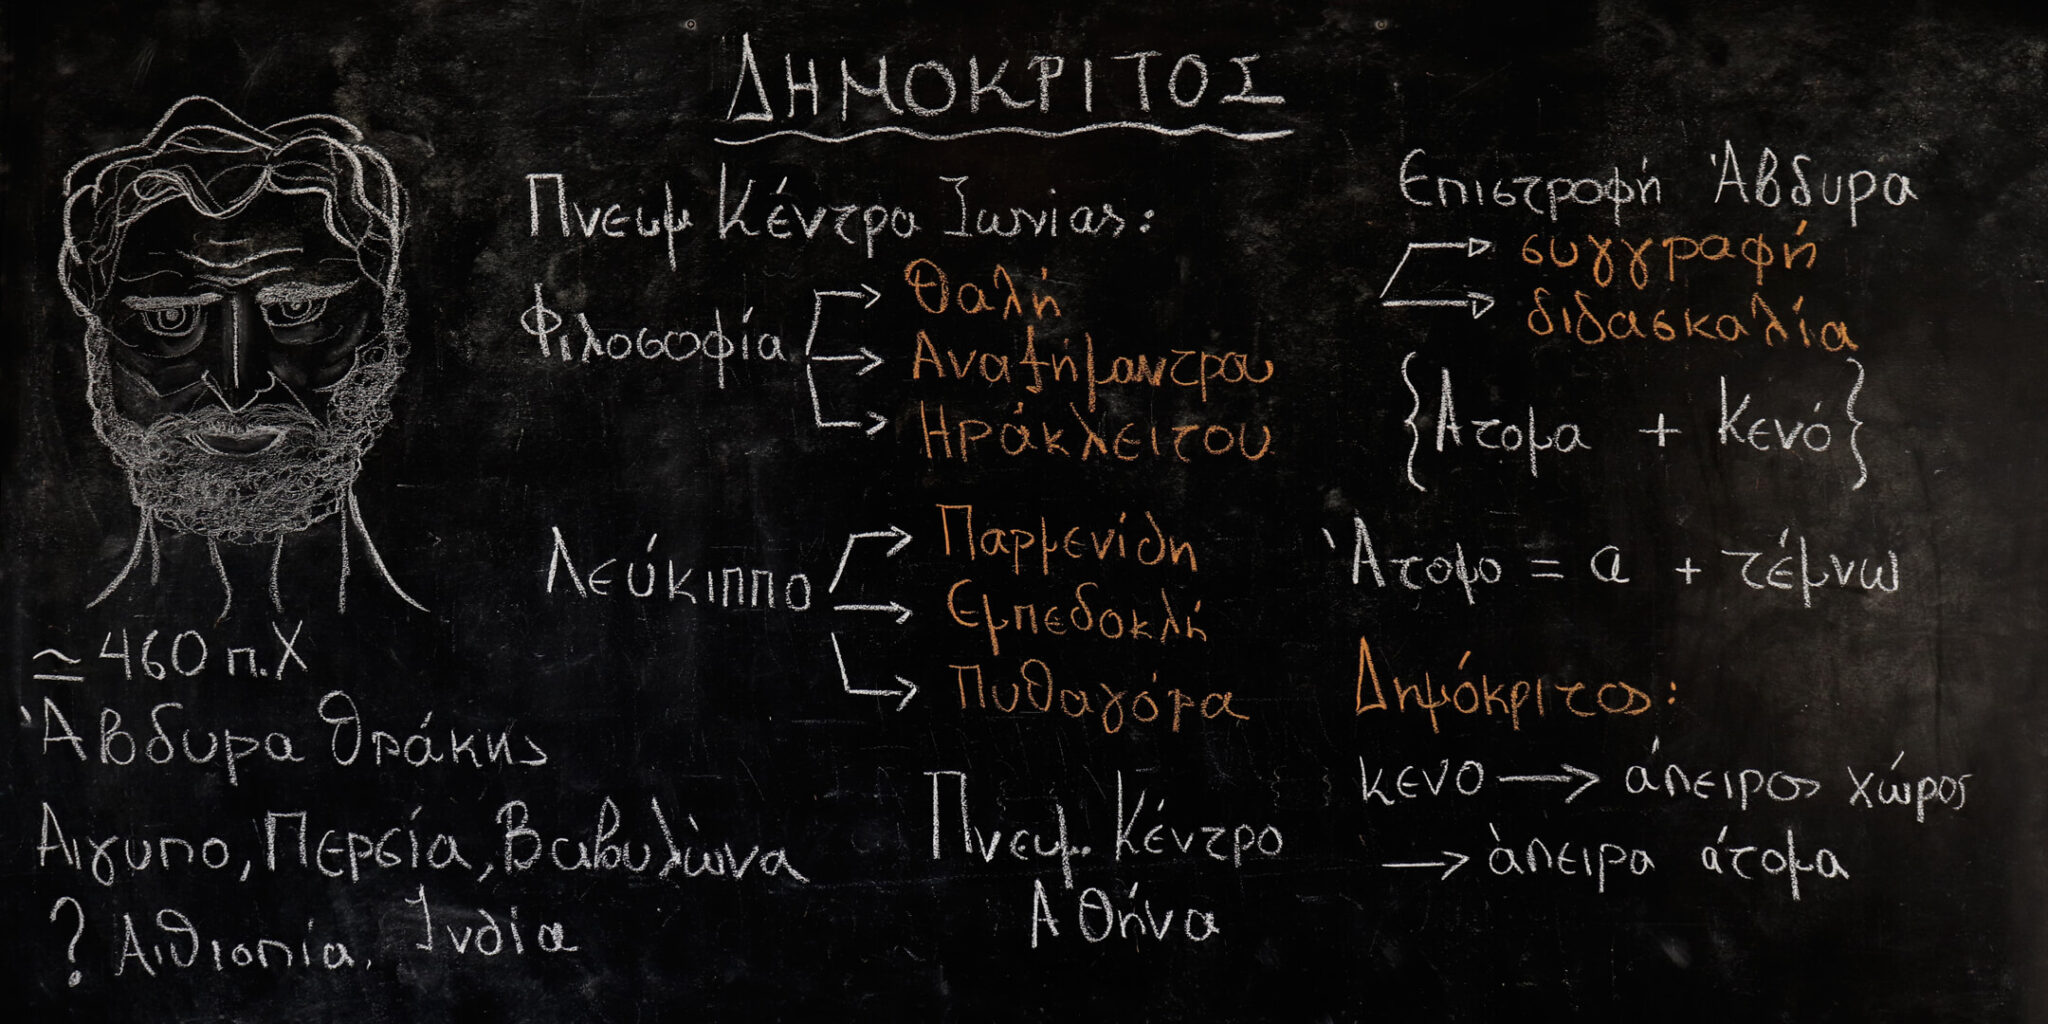 ΔΗΜΟΚΡΙΤΟΣ
≃ 460 π.Χ
Άβδυρα Θράκης
Αιγυπο, Περσία, Βαβυλώνα
? Αιθιοπία, Ινδία
Πνευμ Κέντρα Ιωνίας:
Φιλοσοφία
→ Θαλή
→ Αναξήμαντρου
→ Ηράκλειτου
Λεύκιππο
→ Παρμενίδη
→ Εμπεδοκλή
→ Πυθαγόρα
Πνευμ. Κέντρο
Αθήνα
Επιστροφή Άβδυρα
→ συγγραφή
→ διδασκαλία
{Ατομα + Κενό}
Άτομο = α + τέμνω
Δημόκριτος:
κενο → άπειρος χώρος
→ άπειρα άτομα